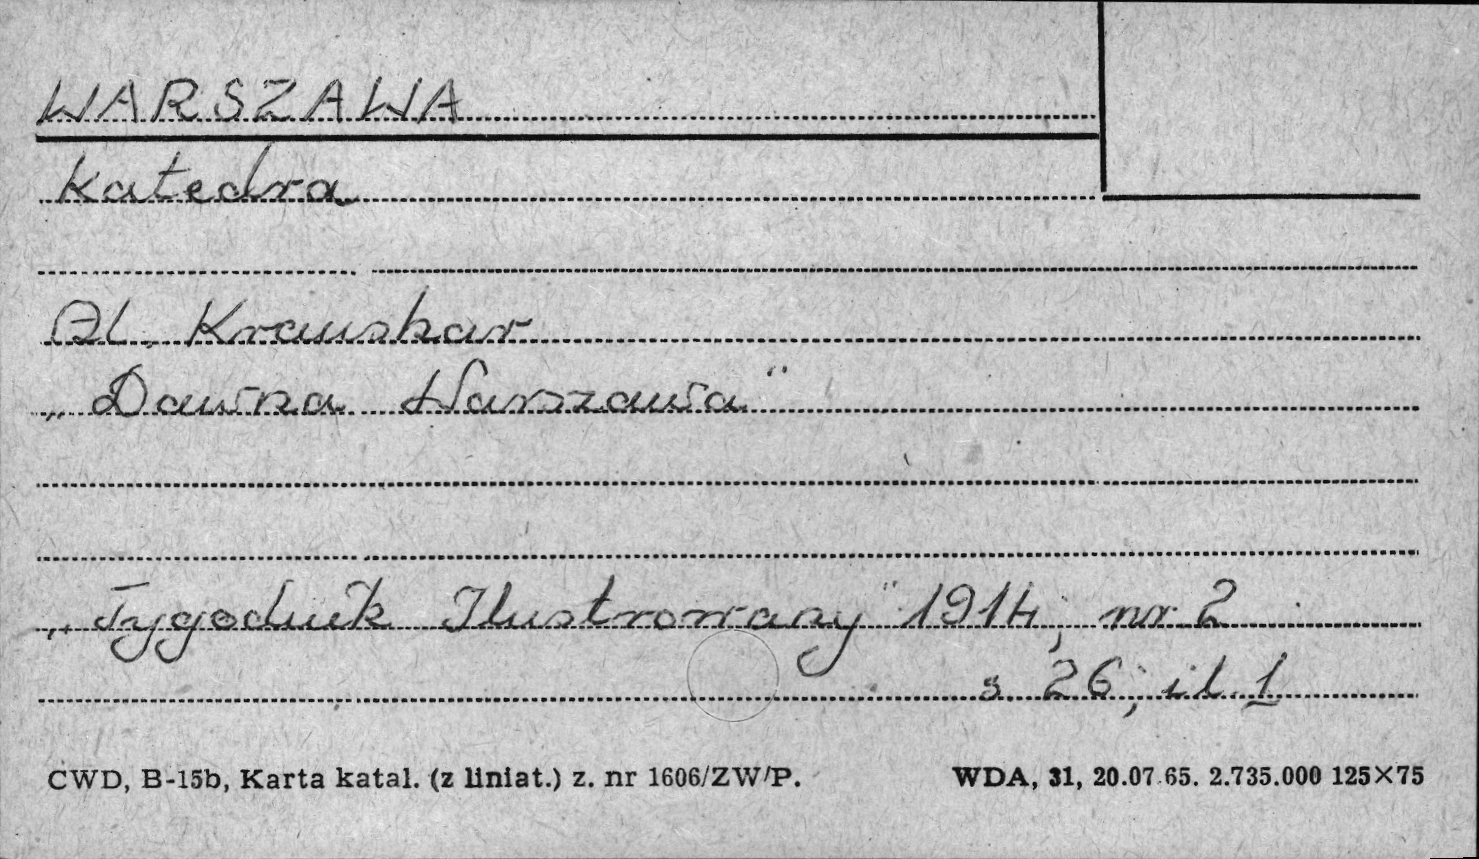 WARSZAWA
Katedra
Al. Kraushar
„Dawna Warszawa"
„Tygodnik Ilustrowany" 1914, nr 2
s. 26, il. 1
CWD, B-15b, Karta katal. (z liniat.) z. nr 1606/ZW/P.
WDA, 31, 20.07.65. 2.735.000 125×75